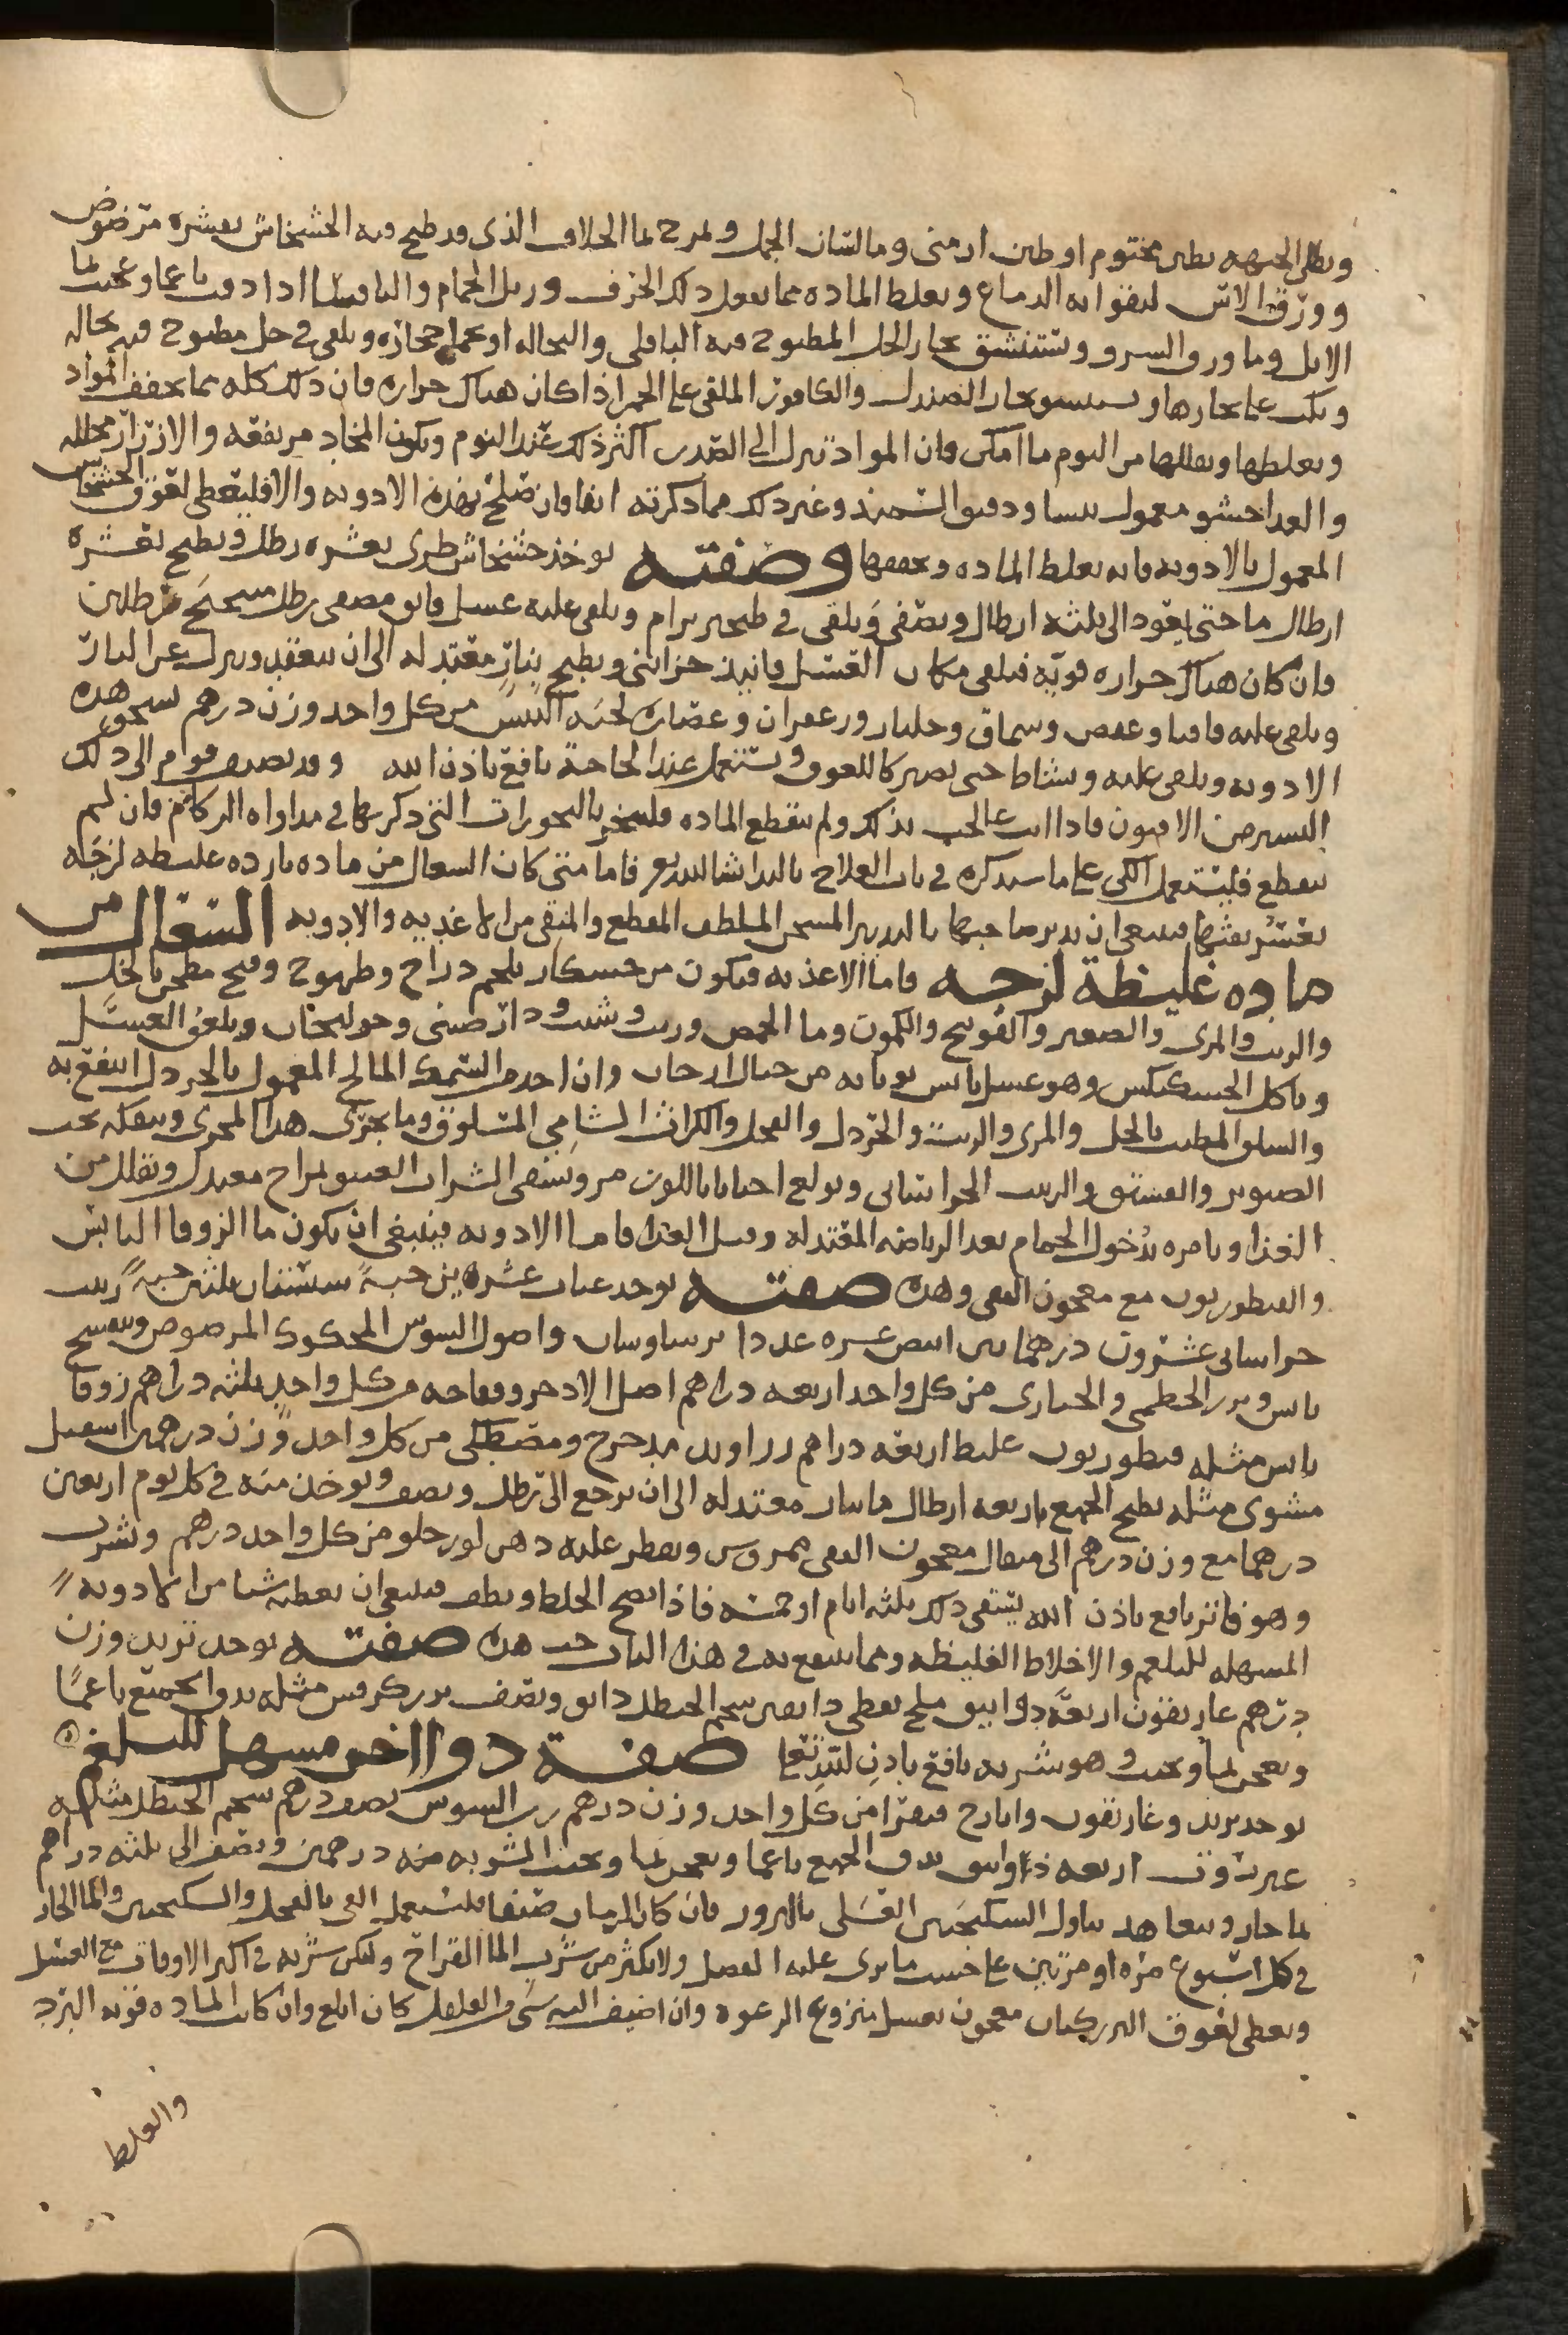 ويطلى الجبهه بطين مختوم او طين ارمنى وما لسان الحمل ويمرخ بما الخلاف الذى قد طبخ فيه الخشخاش بقشره مرضوض
وورق الاس ليقوا به الدماغ ويغلظ الماده مما يفعل ذلك الخزف وزبل الحمام والباقلى اذا دقت ناعما وعجنت بما
الاثل وما ورق السرو ويستنشق بخار الخل المطبوخ فيه الباقلى والنخاله او يحما حجاره ويلقى في خل مطبوخ فيه نخاله
ويكب على بخارها ويستنشق بخار الصندل والكافور الملقى على الجمر اذا كان هناك حراره فان ذلك كله مما يجفف المواد
ويغلظها ويقللها من النوم ما امكن فان المواد تنزل الى الصدر اكثر ذلك عند النوم ويكون المخاد مرتفعه والازرار محلله
والغدا حشو معمول بنشا ودقيق السميد وغير ذلك مما ذكرته انفا فان صلح بهذه الادويه والا فليعطى لعوق الخشخاش
المعمول بالادويه فانه يغلظ الماده ويجففها وصفته يوخذ خشخاش طرى بقشره رطل ويطبخ بعشره
ارطال ما حتى يعود الى ثلثه ارطال ويصفى ويلقى في طنجير برام ويلقى عليه عسل فايق مصفى رطل ميبختج رطلين
وان كان هناك حراره قويه فيلقى مكان العسل فانيذ خزاينى ويطبخ بنار معتدله الى ان ينعقد وينزل عن النار
ويلقى عليه قاقيا وعفص وسماق وجلنار وزعفران وعصاره لحيه التيس من كل واحد وزن درهم يسحق هذه
الادويه ويلقى عليه ويشاط حتى يصير كاللعوق ويستعمل عند الحاجة نافع باذن الله وقد يضيف قوم الى ذلك
اليسير من الافيون فاذا انت عالجت بذلك ولم ينقطع الماده فليبخر بالبخورات التى ذكرتها في مداواه الزكام فان لم
ينقطع فليستعمل الكى على ما سنذكره في باب العلاج بالبدا شا الله تع فاما متى كان السعال من ماده بارده غليظه لزجه
يعسر نفثها فينبغى ان يدبر صاحبها بالتدبير المسخن الملطف المقطع والمنقى من الاغذيه والادويه السعال من
ماده غليظة لزجه فاما الاغذيه فيكون من خشكار بلحم دراج وطيهوج وقبج مطجن بالخل
والزيت والمرى والصعتر والفوتنج والكمون وما الحمص وزيت وشبت ودار صينى وخولنجان ويلعق العسل
وياكل الخسكنكس وهو عسل يابس يوتا به من جبال ارجان وان اخذ من السمك المالح المعمول بالخردل انتفع به
والسلق المطيب بالخل والمرى والزيت والخردل والفجل والكراث الشامى المسلوق وما يجرى هذا المجرى ويتفكه بحب
الصنوبر والفستق والزبيب الخراسانى ويولع احيانا باللوز مر ويسقى الشراب العتيق بمزاج معتدل ويقلل من
الغذا ويامره بدخول الحمام بعد الرياضه المعتدله وقبل الغذا فاما الادويه فينبغى ان يكون ما الزوفا اليابس
والقنطوريون مع معجون القفى وهذه صفته يوخذ عناب عشرين حبةً سبستان ثلثين حبةً زبيب
خراسانى عشرون درهما تين ابيض عشره عددا برسياوشان واصول السوس المحكوك المرضوض وبنفسج
يابس وبزر الخطمى والخبازى من كل واحد اربعه دراهم اصل الاذخر وفقاحه من كل واحد ثلثه دراهم زوفا
يابس مثله قنطوريون غليظ اربعه دراهم زراوند مدحرج ومصطكى من كل واحد وزن درهمين اسقيل
مشوى مثله يطبخ الجميع باربعه ارطال ما بنار معتدله الى ان يرجع الى رطل ونصف ويوخذ منه في كل يوم اربعين
درهما مع وزن درهم الى مثقال معجون القفى ممروس ويقطر عليه دهن لوز حلو من كل واحد درهم ويشرب
وهو فاتر نافع باذن الله يسقى ذلك ثلثه ايام او خمسه فاذا نضج الخلط ولطف فينبغى ان يعطيه شيا من الادويه
المسهله للبلغم والاخلاط الغليظه ومما ينتفع به في هذا الباب حب هذه صفته يوخذ تربد وزن
درهم غاريقون اربعة دوانيق ملح نفطى دانقين شحم الحنظل دانق ونصف بزر كرفس مثله يدق الجميع ناعمًا
ويعجن بما ويحبب وهو شربه نافع باذن الله تعا صفة دوا اخر مسهل للبلغم
يوخذ تربد وغاريقون وايارج فيقرا من كل واحد وزن درهم رب السوس نصف درهم شحم الحنظل مثله
عنزروت اربعه دوانيق يدق الجميع ناعما ويعجن بما ويحبب الشربه منه درهمين ونصف الى ثلثه دراهم
بما حار ويتعاهد تناول السكنجبين العسلى بالبزور فان كان الزمان صيفا فليستعمل القى بالفجل والسكنجبين والما الحار
في كل اسبوع مره او مرتين على حسب ما يرى عليه الفصل ولا يكثر من شرب الما القراح وليكن شربه في اكثر الاوقات مع العسل
ويعطى لعوق البزركتان معجون بعسل منزوع الرغوه وان اضيف اليه شى من الفلفل كان ابلغ وان كانت الماده قويه البرد
والغلظ